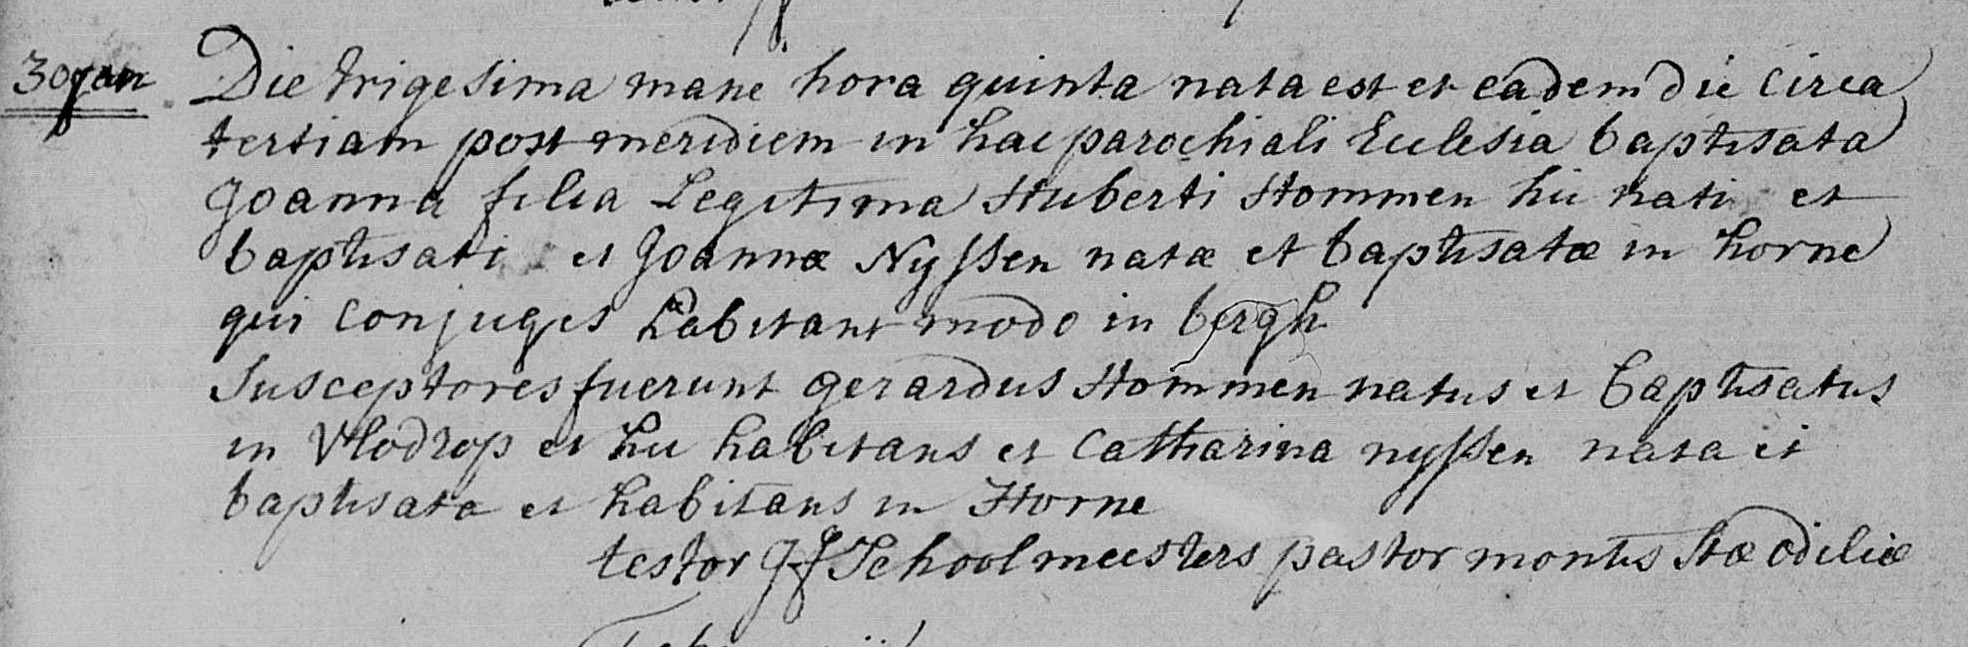 30 Jan Die trigesima mane hora quinta nata est et eadem die circa
tertiam post meridiem in hac parochiali Ecclesia baptisata
Joanna filia Legitima Huberti Stommen hic nati et
baptisati et Joannæ Nyssen natæ et baptisatæ in horne
qui conjuges habitant modo in bergh
Susceptores fuerunt gerardus Stommen natus et baptisatus
in Vlodrop et hic habitans et Catharina nyssen nata et
baptisata et habitans in Horne
testor J J Schoolmeesters pastor montis Stæ odiliæ